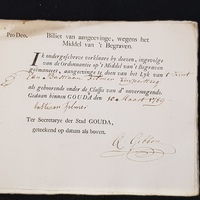 Pro Deo.
Biljet van aangeevinge, wegens het
Middel van 't Begraven.
IK ondergeschreve verklaare by deezen, ingevolge
van de Ordonnantie op 't Middel van 't Begraven
geëmaneert, aangeevinge te doen van het Lyk van 't kint
van
als gehoorende onder de Classis van d' onvermogende.
Gedaan binnen GOUDA den 10 Maart 1769
Ter Secretarye der Stad GOUDA,
geteekend op datum als boven.